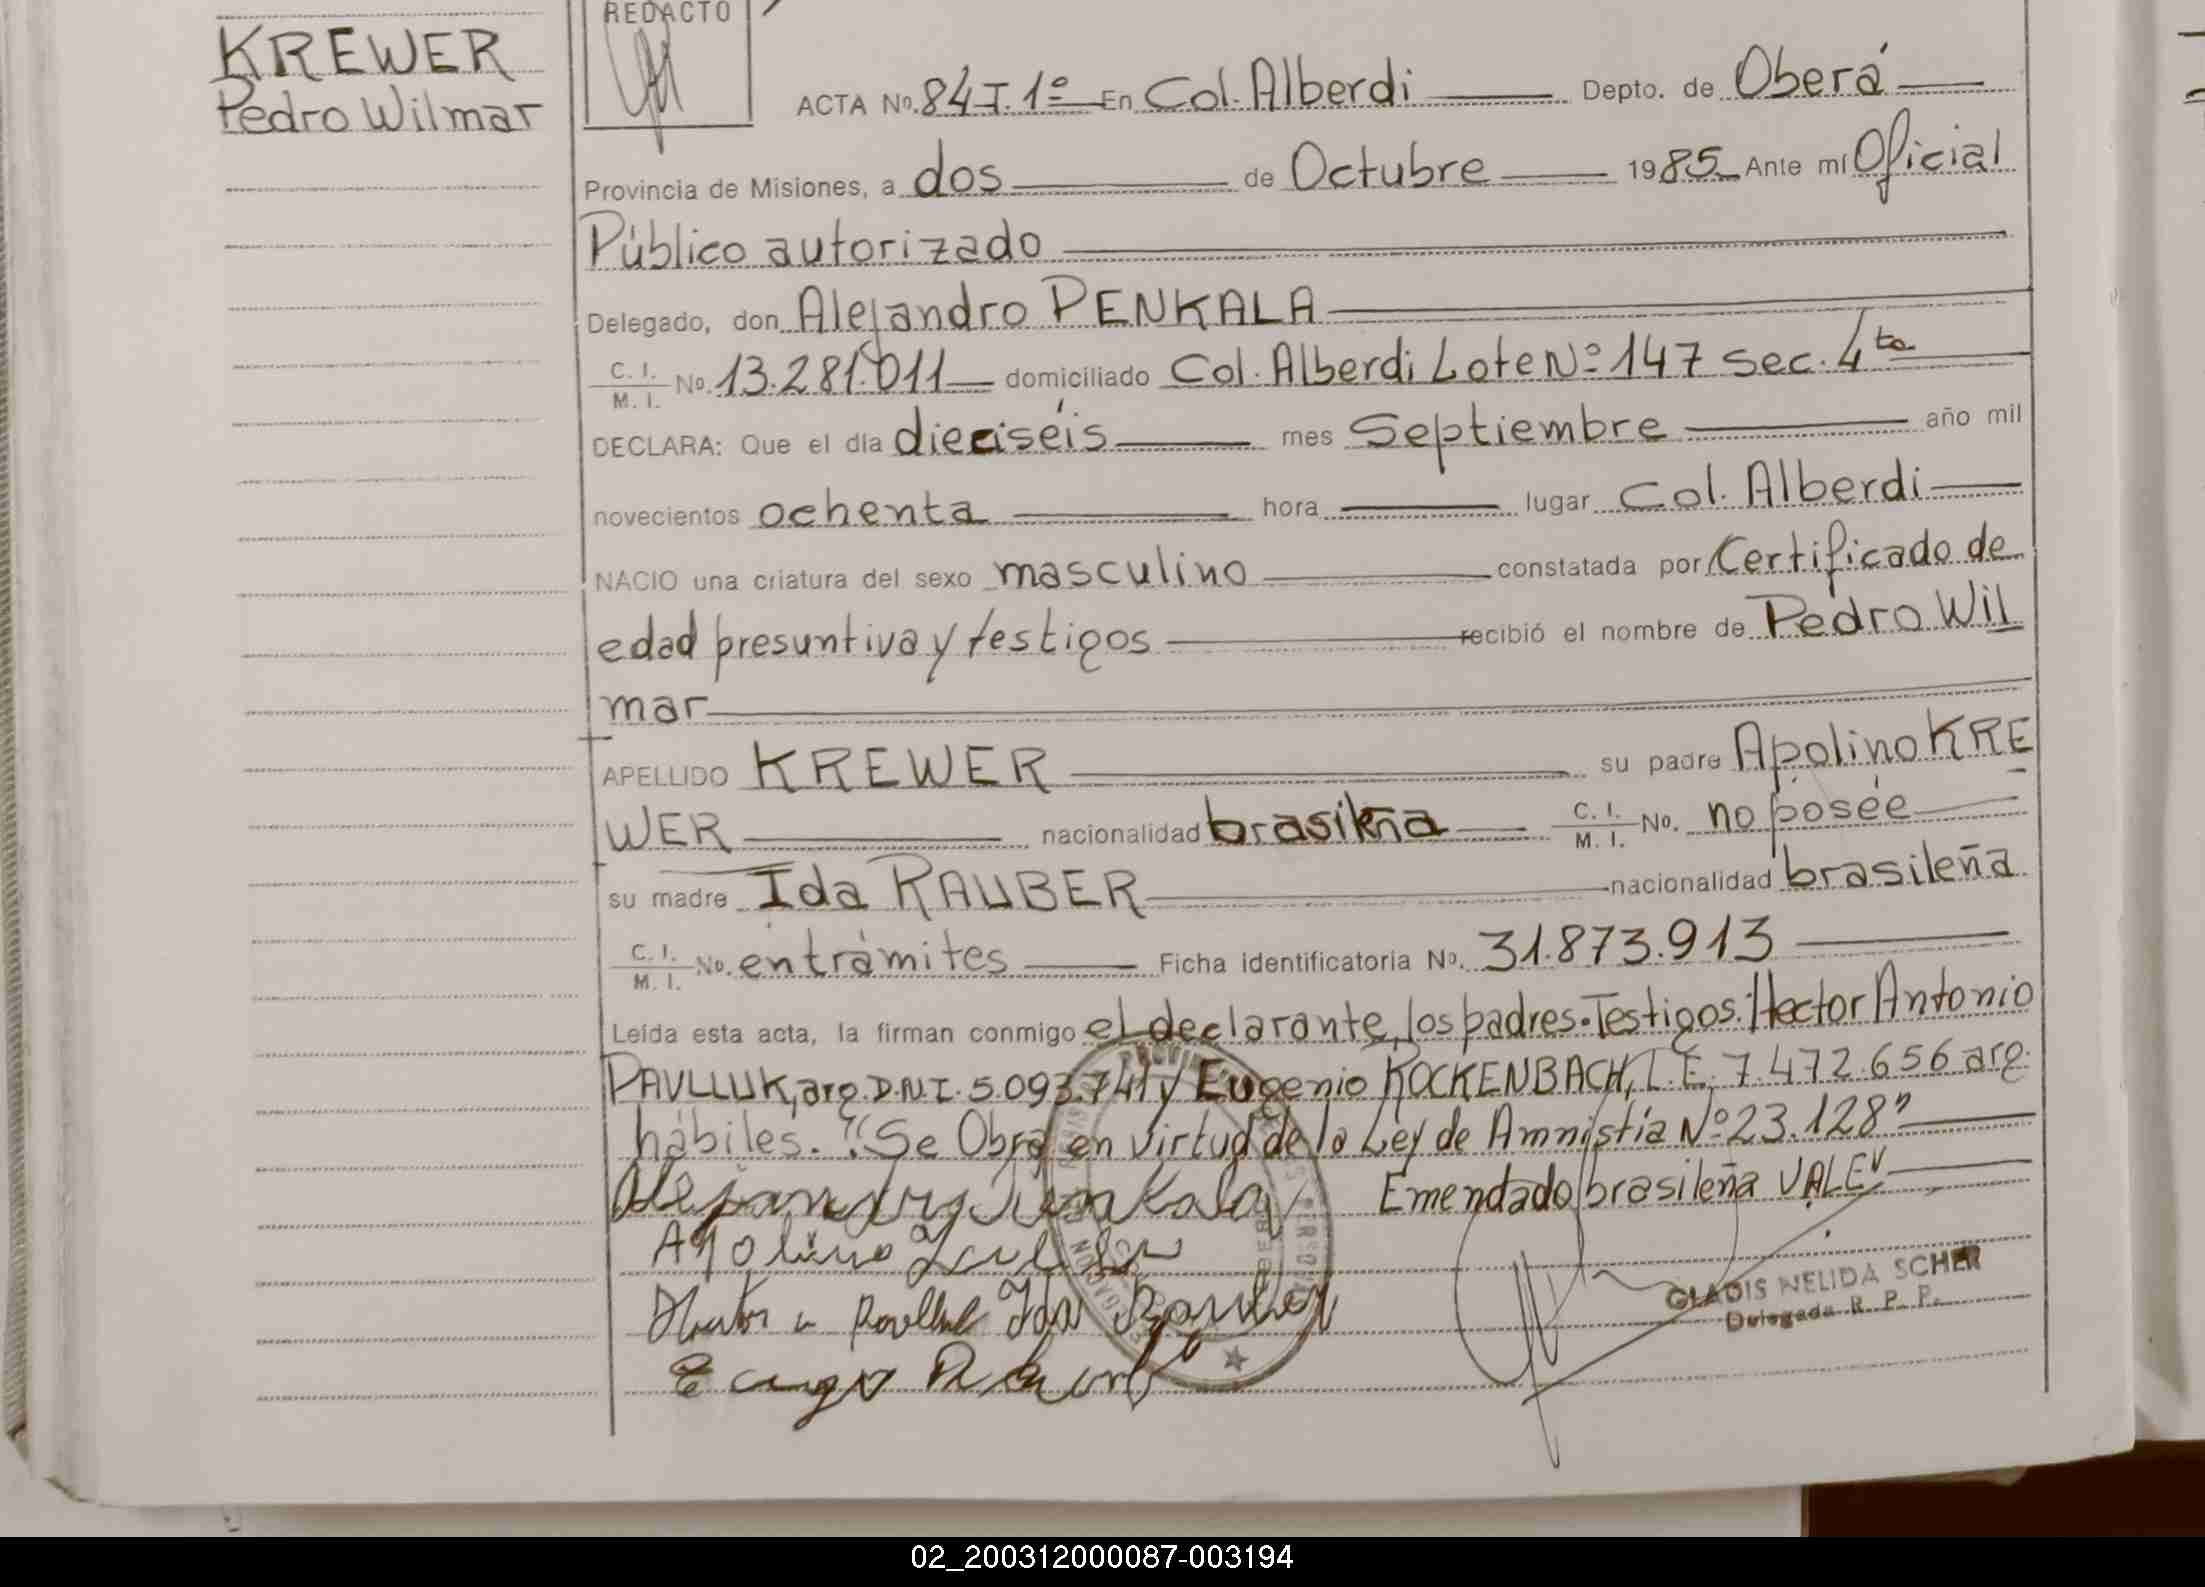 KREWER
Pedro Wilmar
REDACTO
ACTA No. 84 T. 1º En Col. Alberdi Depto. de Oberá
Provincia de Misiones, a dos de Octubre 1985 Ante mí Oficial
Público autorizado
Delegado, don Alejandro PENKALA
C. I. / M. I. No. 13.281.011 domiciliado Col. Alberdi Lote Nº 147 sec. 4ta
DECLARA: Que el día dieciséis mes Septiembre año mil
novecientos ochenta hora lugar Col. Alberdi
NACIO una criatura del sexo masculino constatada por Certificado de
edad presuntiva y testigos recibió el nombre de Pedro Wil
mar
APELLIDO KREWER su padre Apolino KRE
WER nacionalidad brasileña C. I. / M. I. No. no posée
su madre Ida RAUBER nacionalidad brasileña
C. I. / M. I. No. en trámites Ficha identificatoria No. 31.873.913
Leída esta acta, la firman conmigo el declarante, los padres. Testigos: Hector Antonio
PAVLLUK, arg. D.N.I. 5.093.741 y Eugenio ROCKENBACH, L.E. 7.472.656 arg.
hábiles. "Se Obra en virtud de la Ley de Amnistía Nº 23.128"
Alejandro Penkala Emendado brasileña VALE
Apolino
GLADIS NELIDA SCHER
Delegada R. P. P.
Ida Rauber
02_200312000087-003194